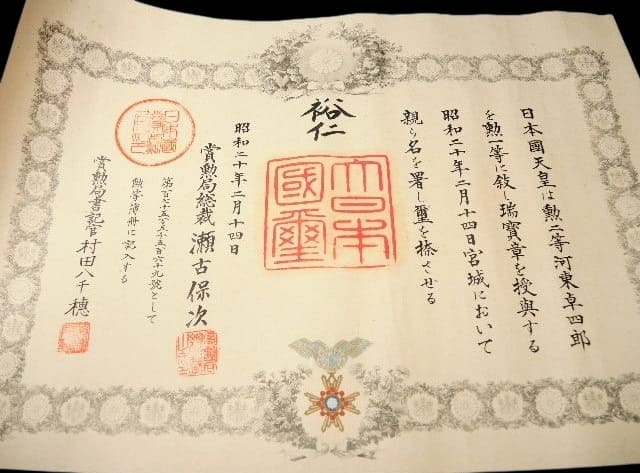 日本國天皇は勲二等河東卓四郎
を勲一等に敍し瑞寶章を授與する
昭和二十年二月十四日宮城において
親ら名を署し璽を捺させる
裕仁
大日本國璽
昭和二十年二月十四日
賞勲局総裁 瀬古保次
第百七十五万五千五百六十九號として
勲等簿册に記入する
賞勲局書記官 村田八千穂